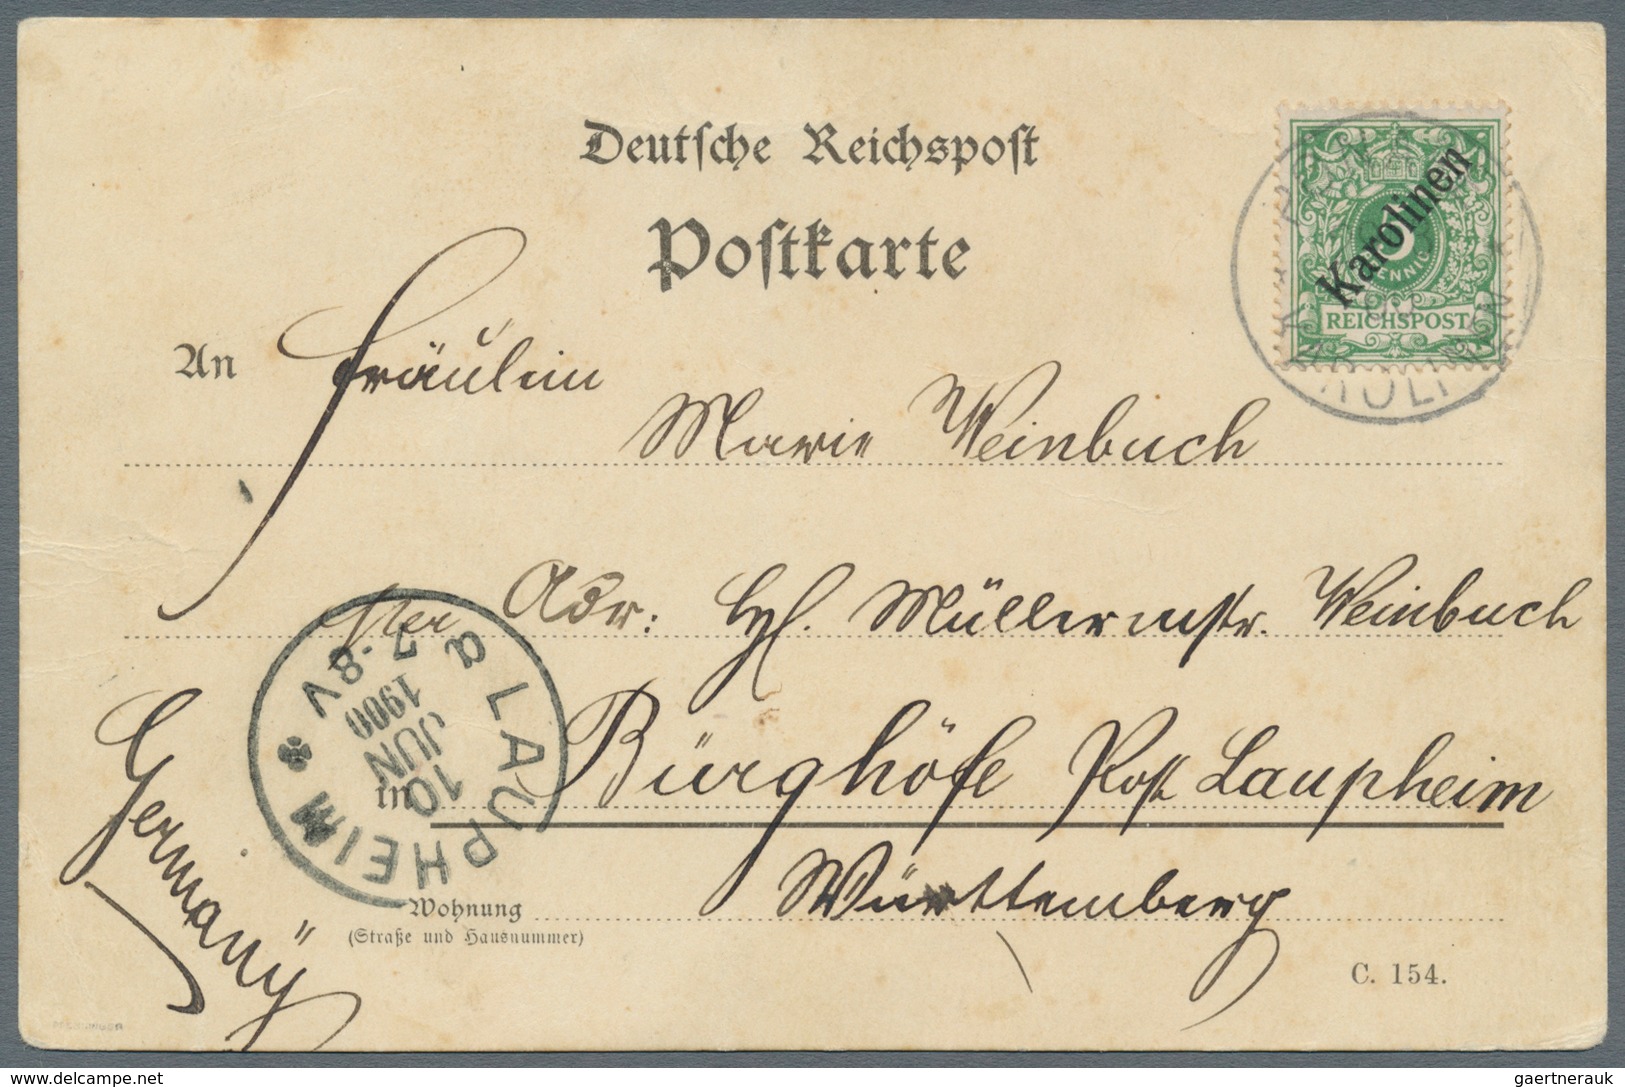 Deutsche Reichspost
Postkarte
Karolinen
5
PFENNIG
REICHSPOST
KAROLINEN
An Fräulein
Marie Weinbuch
Adr: Müllermstr. Weinbuch
a LAUPHEIM
7-8V
1900
JUN
10
in Burghöfe Post Laupheim
Württemberg
Germany
Wohnung
(Straße und Hausnummer)
C. 154.
delcampe.net
gaertnerauk